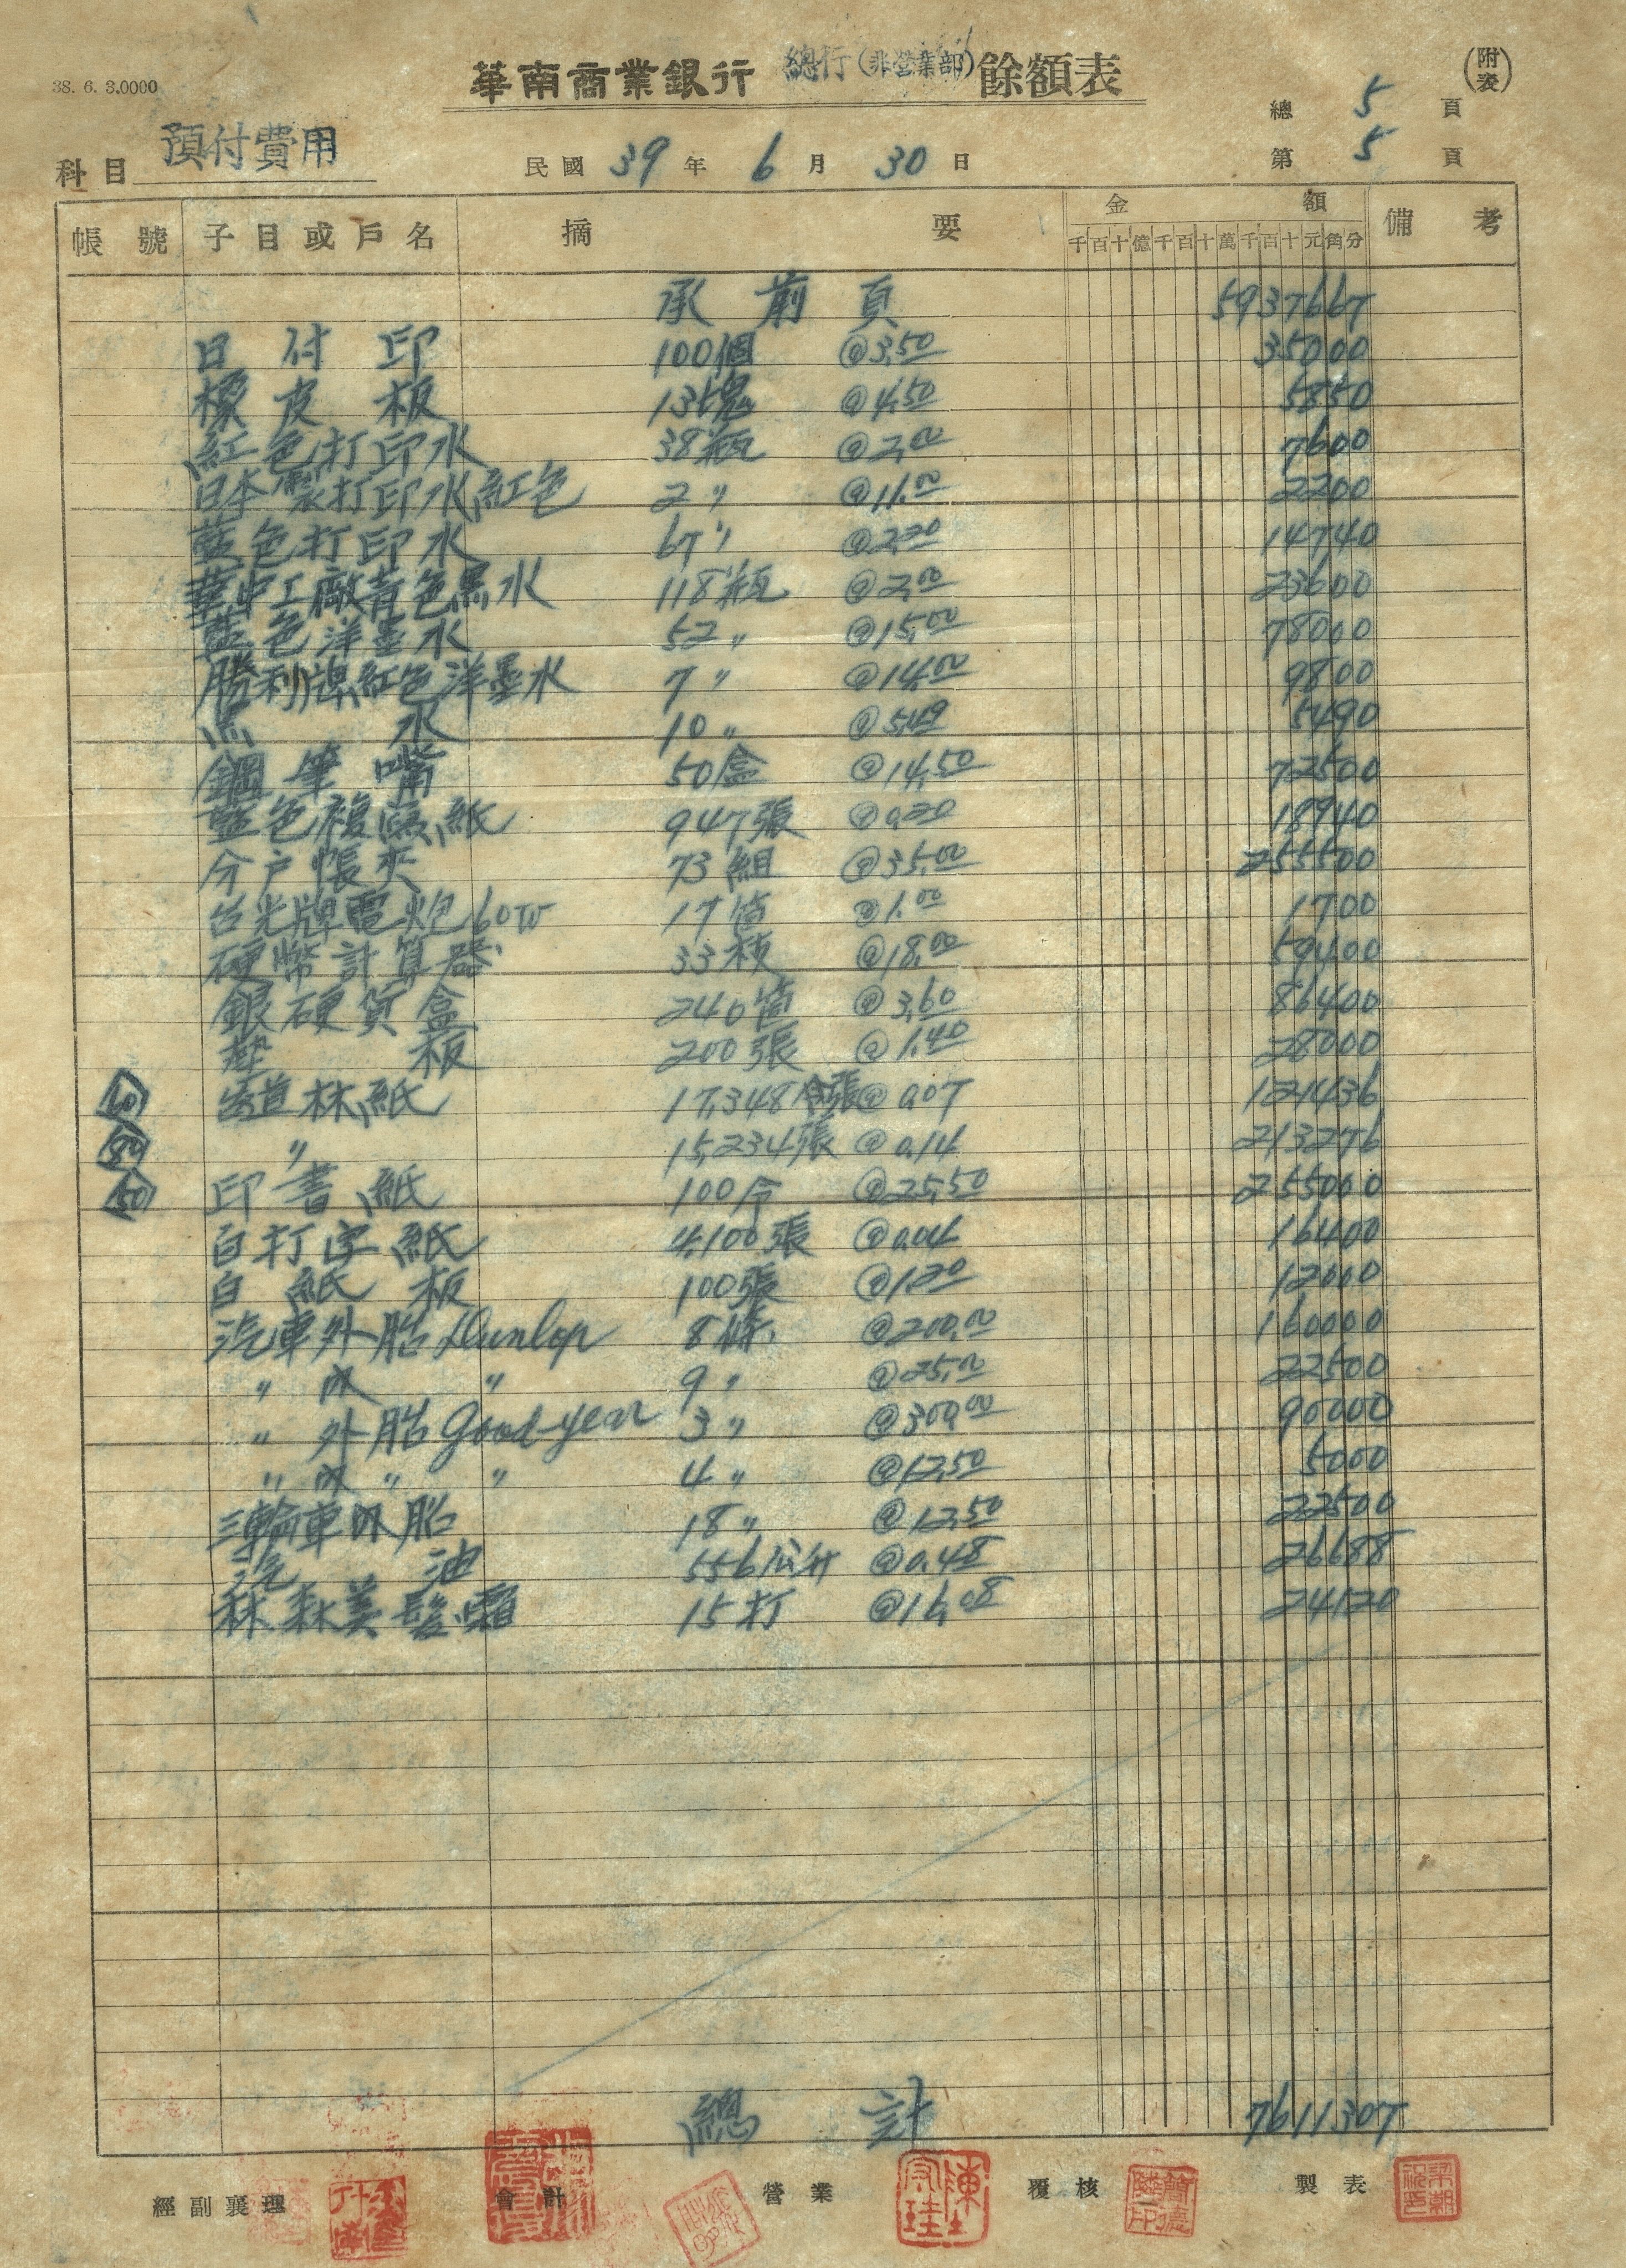 38. 6. 3.0000
華南商業銀行 總行(非營業部) 餘額表
(附表)
總 5 頁
科目 預付費用 民國 39 年 6 月 30 日 第 5 頁
帳號 子目或戶名 摘要 金額 備考
千百十億千百十萬千百十元角分
承前頁 5937667
日付印 100個 @3.50 35000
橡皮板 13塊 @4.50 5850
紅色打印水 38瓶 @2.00 7600
日本製打印水紅色 2〃 @11.00 2200
藍色打印水 67〃 @2.20 14740
華中工廠青色黑水 118瓶 @2.00 23600
藍色洋墨水 52〃 @15.00 78000
勝利牌紅色洋墨水 7〃 @14.00 9800
水 10〃 @5.49 5490
鋼筆嘴 50盒 @14.50 72500
藍色複寫紙 947張 @0.20 18940
分戶帳夾 73組 @35.00 255500
台光牌電炮60W 17個 @1.00 1700
硬幣計算器 33枚 @18.00 59400
銀硬貨盒 240個 @3.60 86400
墊板 200張 @1.40 28000
60 道林紙 17,348張 @0.07 121436
80 〃 15,234張 @0.14 213276
50 印書紙 100令 @25.50 255000
白打字紙 4,100張 @0.04 16400
白紙板 100張 @1.20 12000
汽車外胎Dunlop 8條 @200.00 160000
〃内〃 9〃 @25.00 22500
〃外胎Good-year 3〃 @300.00 90000
〃内〃〃 4〃 @12.50 5000
三輪車内胎 18〃 @12.50 22500
汽油 556公升 @0.48 26688
森森美髮霜 15打 @16.08 24120
總計 7611307
經副襄理 會計 營業 覆核 製表